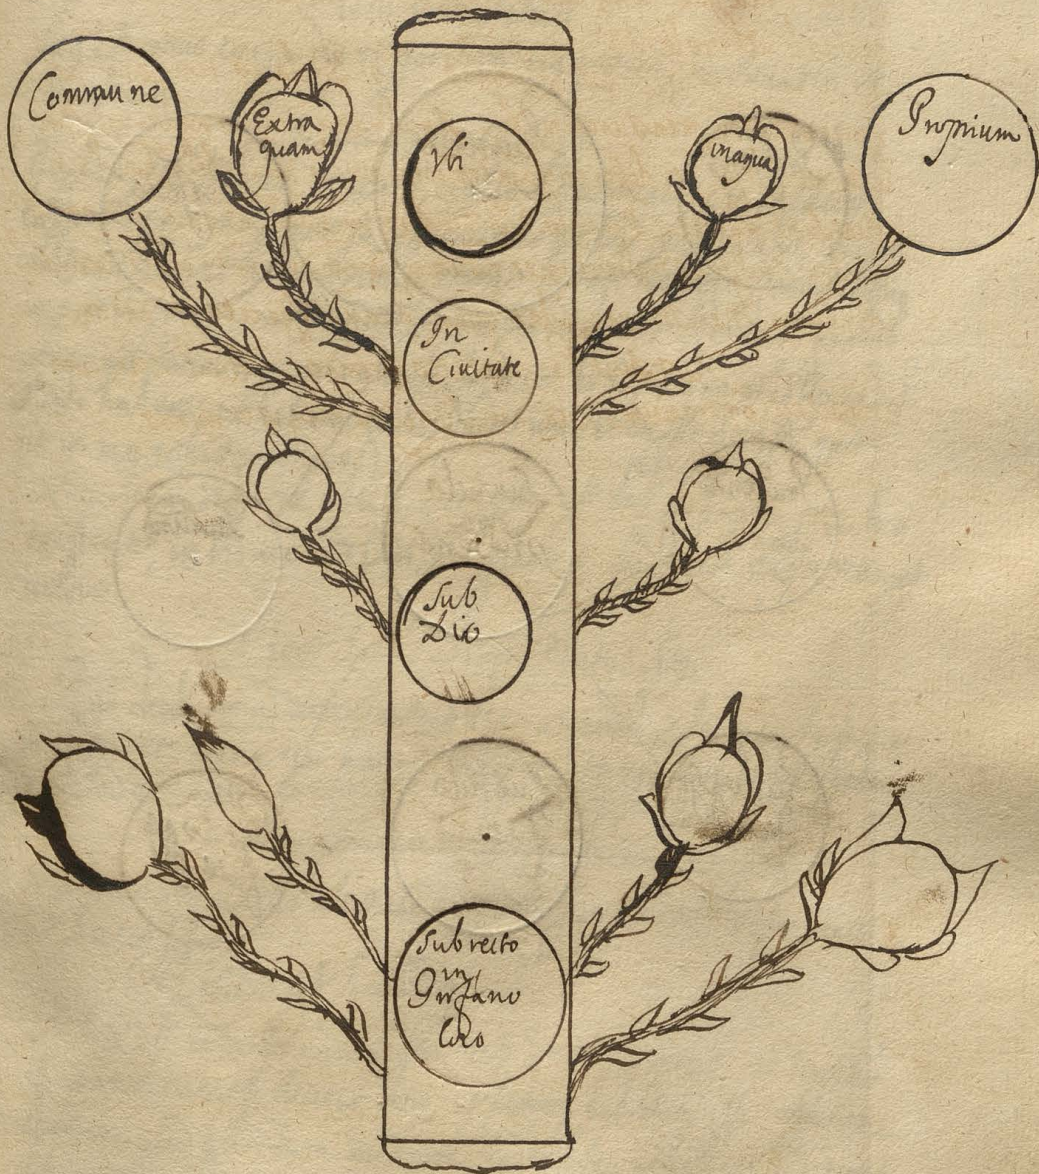 Commune
Extra
quam
Vbi
in aqua
Proprium
In
Ciuitate
Sub
Dio
Sub recto
in
Profano
loco